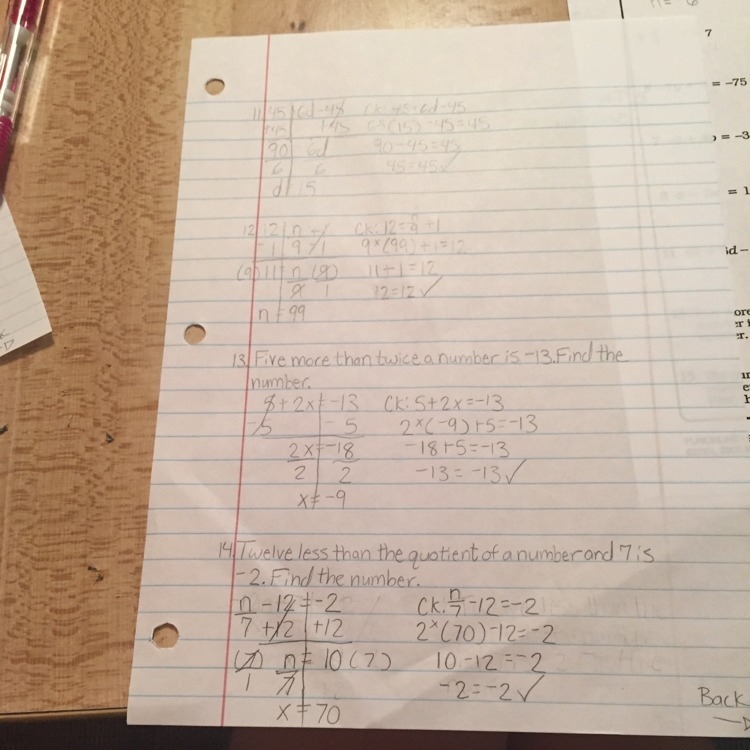 n= 6
7
= -75
= -3
= 1
id-
11. 45 | 6d-45 CK: 45=6d-45
+45 | +45 6×(15)-45=45
90 | 6d 90-45=45
6 | 6 45=45✓
d=15
12. 12 | n +1 CK: 12=n/9 +1
-1 | 9 -1 9×(99)+1=12
(9)11=n (9) 11+1=12
9 1 12=12✓
n=99
13. Five more than twice a number is -13. Find the
number.
5+2x=-13 CK: 5+2x=-13
-5 -5 2×(-9)+5=-13
2x=-18 -18+5=-13
2 2 -13=-13✓
x=-9
14. Twelve less than the quotient of a number and 7 is
-2. Find the number.
n -12=-2 CK: n/7 -12=-2
7 +12 +12 2×(70)-12=-2
(7) n=10(7) 10-12=-2
1 7 -2=-2✓
x=70
Back